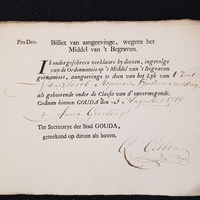 Pro Deo. Billiet van aangeevinge, wegens het
Middel van 't Begraven.
Ik ondergeschreve verklaare by deezen, ingevolge
van de Ordonnantie op 't Middel van 't Begraven
geëmaneert, aangeevinge te doen van het Lyk van 't kint
van Jacob
als gehoorende onder de Classe van d'onvermogende.
Gedaan binnen GOUDA den 3 Augustus
Anna
Ter Secretarye der Stad GOUDA,
geteekend op datum als boven.